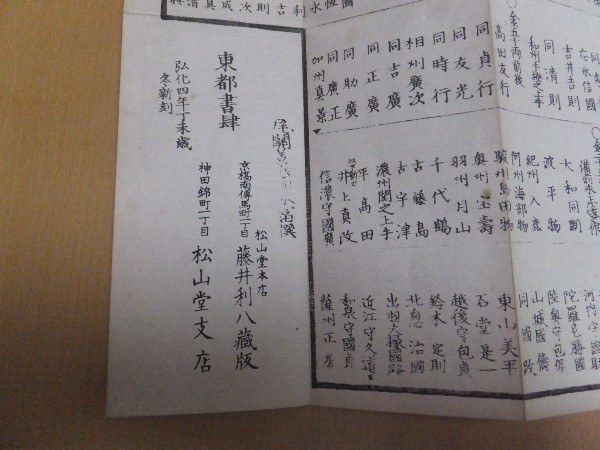 同貞行
同友光
同時行
相州廣次
同吉廣
同正廣
同助廣
同廣正
加州真景
高田友行
和州手掻之上手
同清則
吉井吉則
応永信國
阿州海部物
紀州入鹿
波平物
大和同斷
駿州島田物
奥州宝壽
羽州月山
千代鶴
古藤島
古宇津
濃州関之上手
平高田
井上真改
信濃守國廣
河内守國助
陀羅尼勝國
陸奥守包保
山城國儔
同國改
東山美平
石堂是一
越後守包貞
鈴木定則
北窓治國
出羽大掾國路
近江守久道
和泉守國貞
薩州正房
東都書肆
弘化四年丁未歳
冬新刻
松山堂本店
京橋南傳馬町一丁目
藤井利八藏版
神田錦町一丁目
松山堂支店